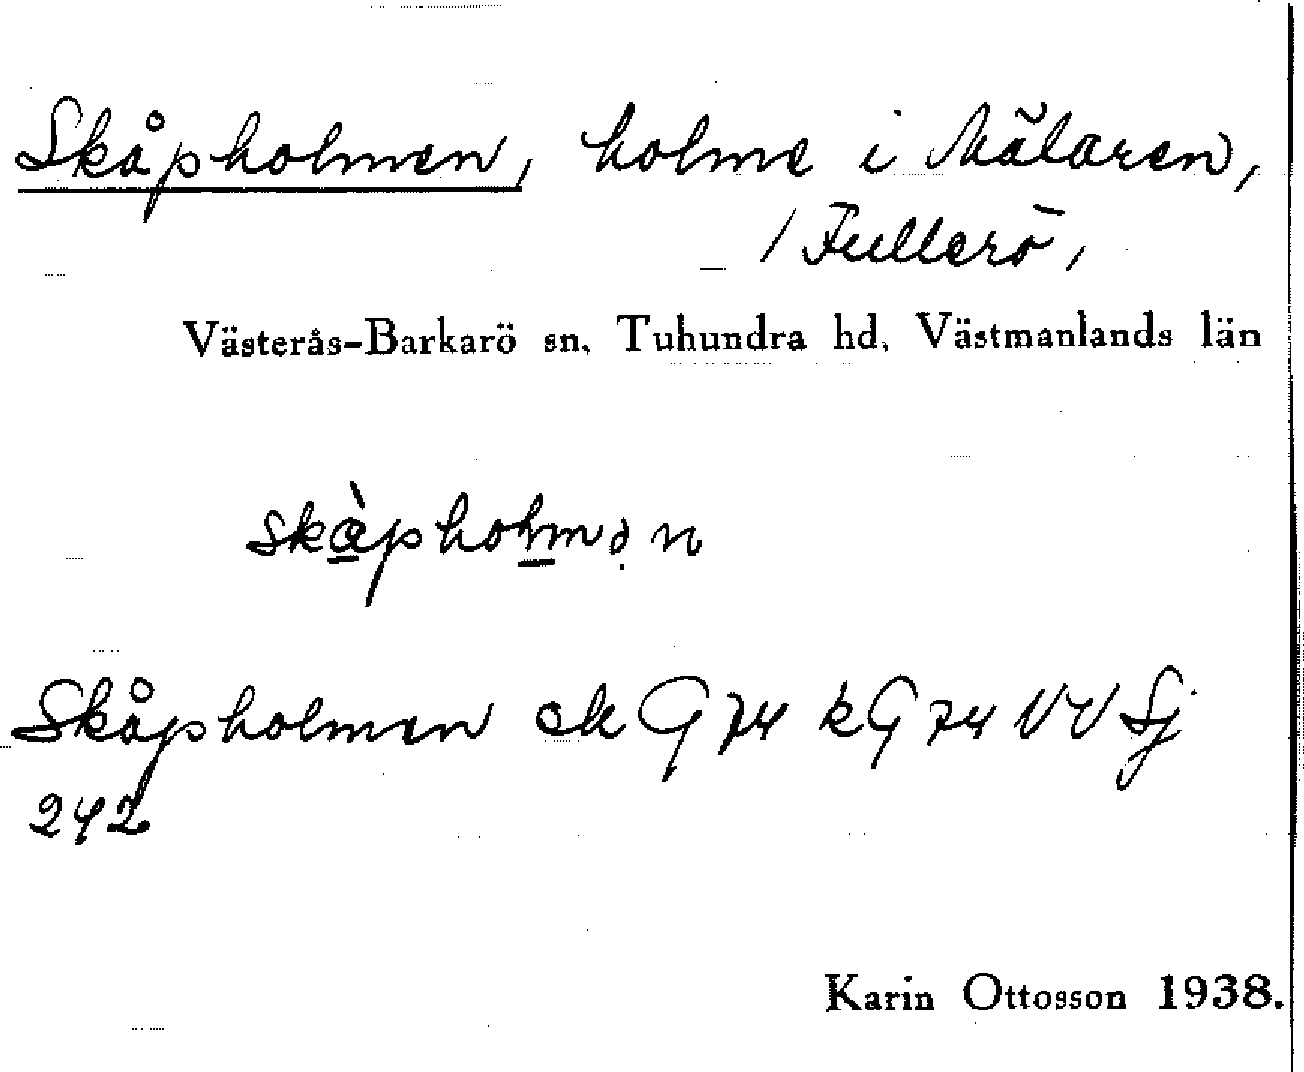 Skåpholmen, holme i Mälaren,
/ Fullerö,
Västerås-Barkarö sn. Tuhundra hd. Västmanlands län
Skåpholmen ek G 74 k G 74 NV Sj
242
Karin Ottosson 1938.